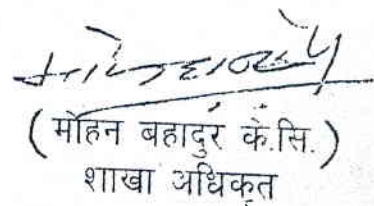 (मोहन बहादुर के.सि.)
शाखा अधिकृत